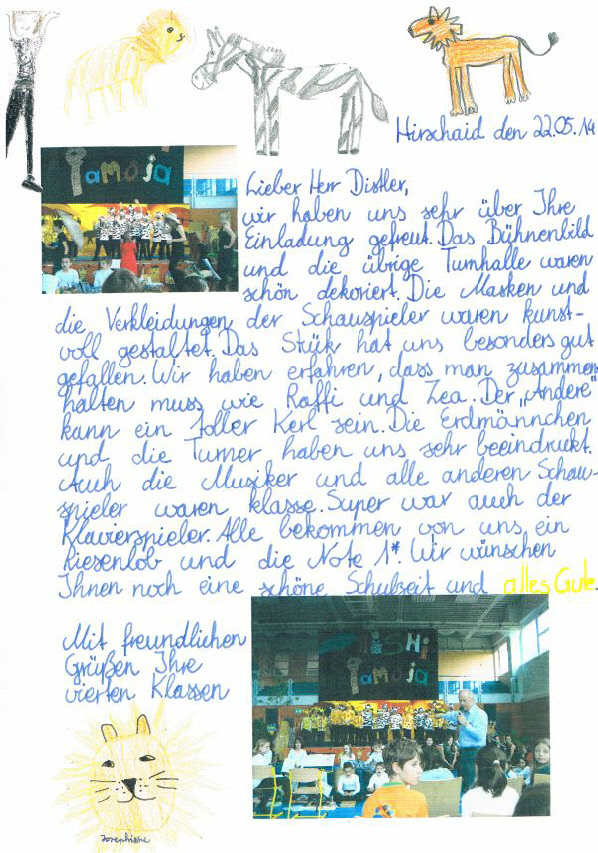 Hirschaid den 22.05.14
Tamoja
Lieber Herr Distler,
wir haben uns sehr über Ihre
Einladung gefreut. Das Bühnenbild
und die übrige Turnhalle waren
schön dekoriert. Die Masken und
die Verkleidungen der Schauspieler waren kunst-
voll gestaltet. Das Stük hat uns besonders gut
gefallen. Wir haben erfahren, dass man zusammen
halten muss wie Raffi und Zea. Der „Andere"
kann ein toller Kerl sein. Die Erdmännchen
und die Turner haben uns sehr beeindruckt.
Auch die Musiker und alle anderen Schau-
spieler waren klasse. Super war auch der
Klavierspieler. Alle bekommen von uns ein
Riesenlob und die Note 1*. Wir wünschen
Ihnen noch eine schöne Schulzeit und alles Gute.
Mit freundlichen
Grüßen Ihre
vierten Klassen
Tamoja